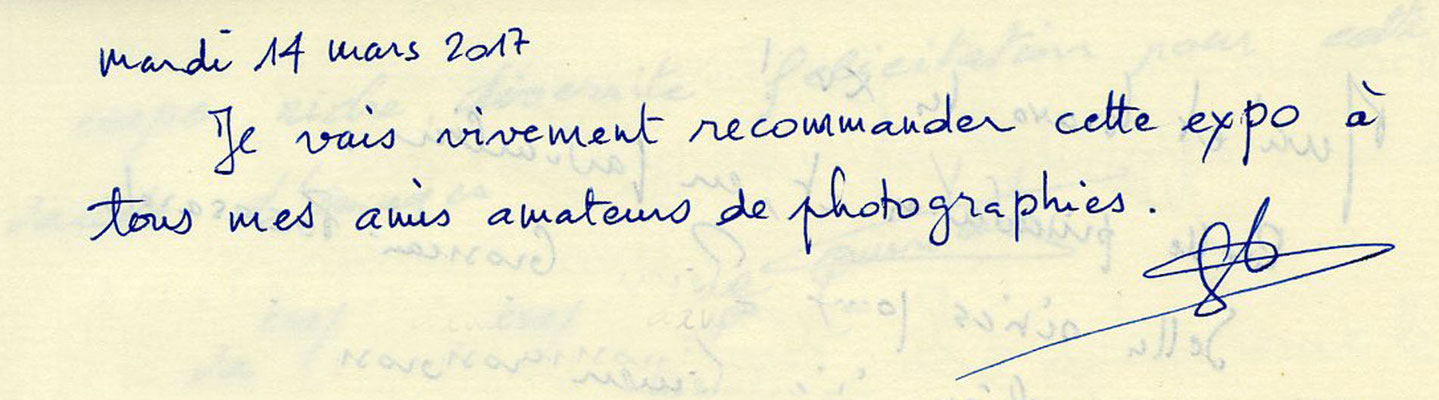 mardi 14 mars 2017
Je vais vivement recommander cette expo à
tous mes amis amateurs de photographies.